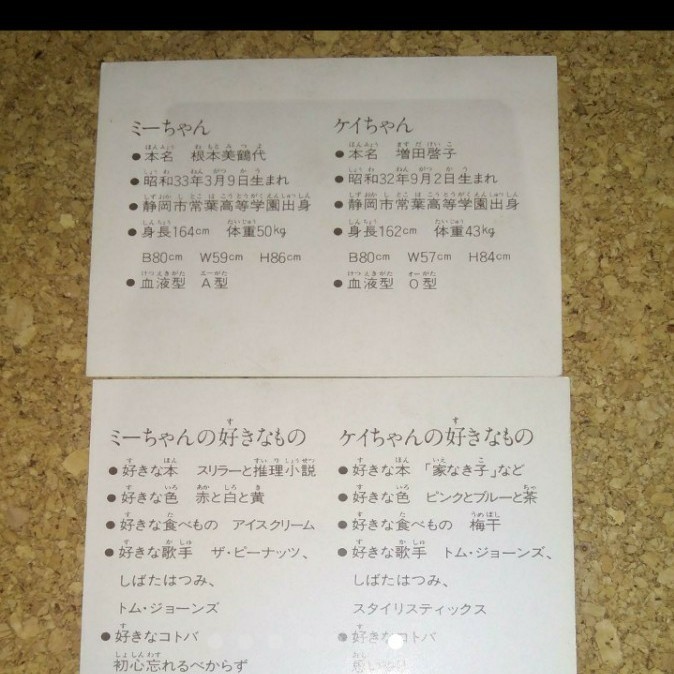 ミーちゃん
●本名 根本美鶴代
●昭和33年3月9日生まれ
●静岡市常葉高等学園出身
●身長164cm 体重50kg
B80cm W59cm H86cm
●血液型 A型
ケイちゃん
●本名 増田啓子
●昭和32年9月2日生まれ
●静岡市常葉高等学園出身
●身長162cm 体重43kg
B80cm W57cm H84cm
●血液型 O型
ミーちゃんの好きなもの
●好きな本 スリラーと推理小説
●好きな色 赤と白と黄
●好きな食べもの アイスクリーム
●好きな歌手 ザ・ピーナッツ、
しばたはつみ、
トム・ジョーンズ
●好きなコトバ
初心忘れるべからず
ケイちゃんの好きなもの
●好きな本 「家なき子」など
●好きな色 ピンクとブルーと茶
●好きな食べもの 梅干
●好きな歌手 トム・ジョーンズ、
しばたはつみ、
スタイリスティックス
●好きなコトバ